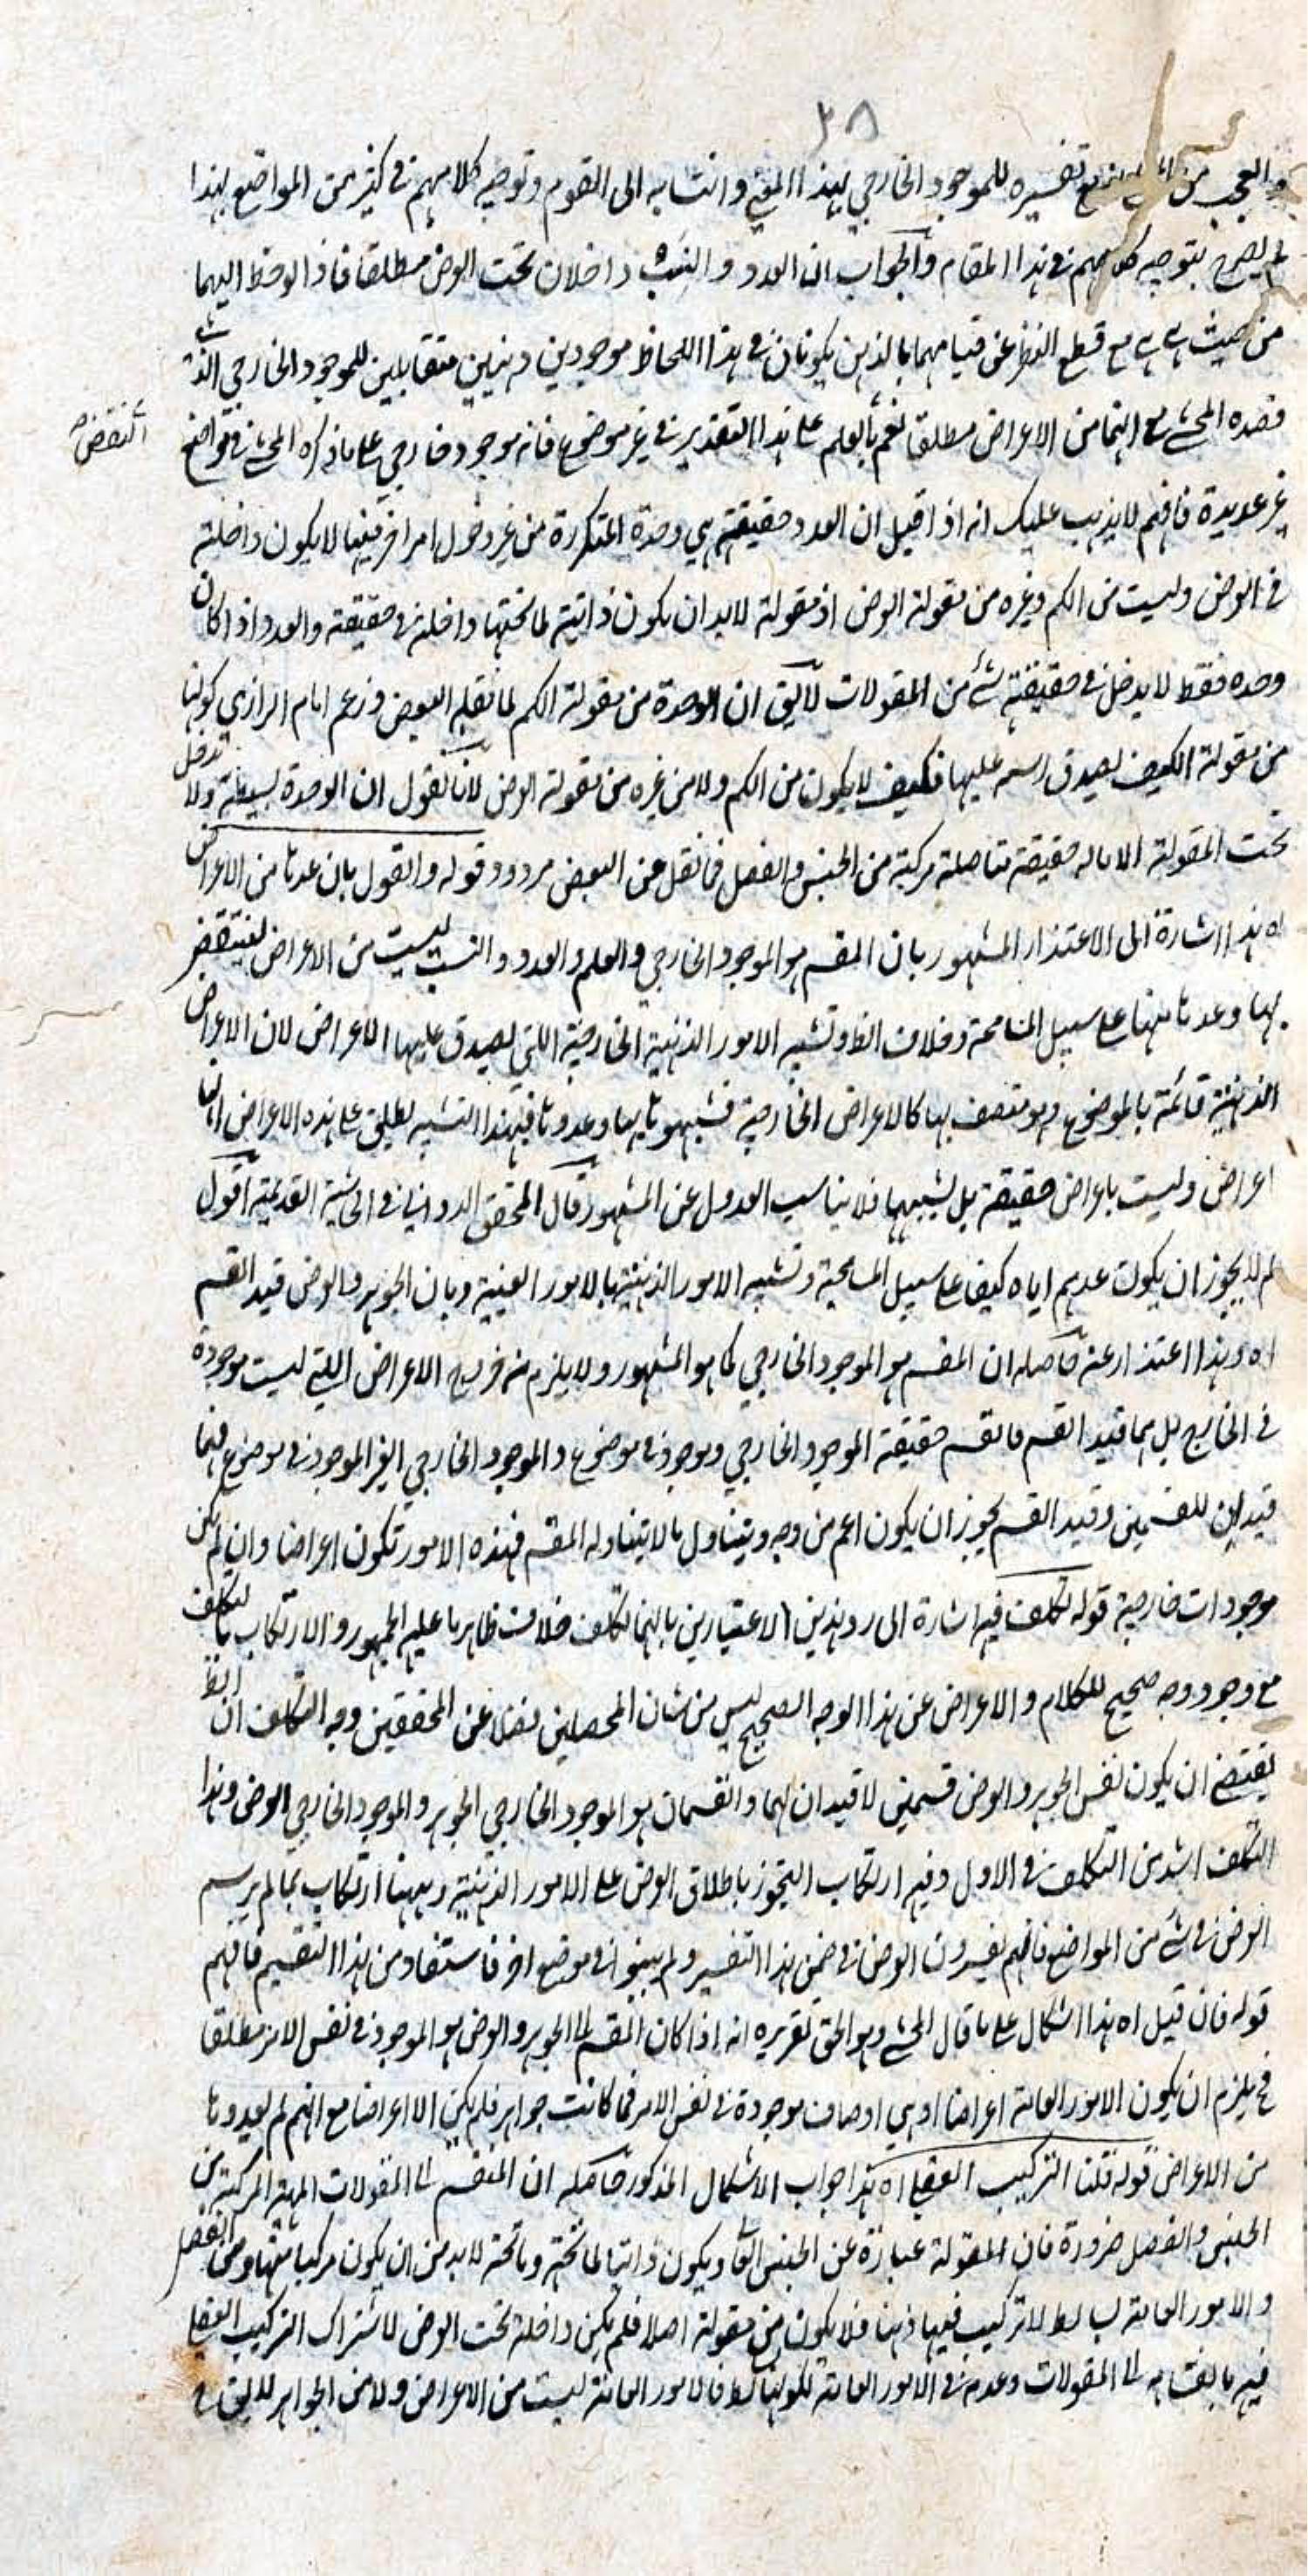 ٢٨
والعجب من المحشي مع تفسيره للموجود الخارجي بهذا المعنى وانتسابه الى القوم وتوجيه كلامهم في كثير من المواضع بهذا
لم يصرح بتوجيه كلامهم في هذا المقام والجواب ان العدد والنسب داخلان تحت العرض مطلقا فاذا لوحظ اليهما
من حيث هي هي مع قطع النظر عن قيامهما بالذهن يكونان في هذا اللحاظ موجودين ذهنيين متقابلين للموجود الخارجي الذي
قصده المحشي مع انهما من الاعراض مطلقا نعم بالعلم على هذا التقدير في غير موضع فانه موجود خارجي على ما ذكره المحشي في مواضع
النقض صح
غير عديدة فافهم لا يذهب عليك انه اذا قيل ان العدد حقيقته هي وحدة المتكررة من غير دخول امر اخر فيها لا يكون داخلة
في العرض وليست من الكم وغيره من مقولة العرض اذ مقولة لا بد ان يكون ذاتية لما تحتها داخلة في حقيقته والعدد اذا كان
وحده فقط لا يدخل في حقيقته شئ من المقولات لا يق ان الوحدة من مقولة الكم لما نقله البعض وزعم امام الرازي كونها
من مقولة الكيف لصدق رسمه عليها فكيف لا يكون من الكم ولا من غيره من مقولة العرض لانا نقول ان الوحدة بسيطة ولا تدخل
تحت المقولة الا ما له حقيقة متاصلة مركبة من الجنس والفصل فما نقل عن البعض مردود قوله والقول بان عدها من الاعراض
اه هذا اشارة الى الاعتذار المشهور بان المقسم هو الموجود الخارجي والعلم والعدد والنسب ليست من الاعراض لينتقض
بها وعدها منها على سبيل المسامحة وخلاف الظ وتشبيه الامور الذهنية الخارجية اللتي يصدق عليها الاعراض لان الاعراض
الذهنية قائمة بالموضوع وهو متصف بها كالاعراض الخارجية فشبهوها بها وعدوها فبهذا التشبيه يطلق على هذه الاعراض انها
اعراض وليست باعراض حقيقة بل يشبهها فلا يناسب العدول عن المشهور قال المحقق الدواني في الحاشية القديمة اقول
لم لا يجوز ان يكون عدهم اياه كيفا على سبيل المسامحة وتشبيه الامور الذهنية بالامور العينية وبان الجوهر والعرض قيد القسم
اه وهذا اعتذار عنه حاصله ان المقسم هو الموجود الخارجي كما هو المشهور ولا يلزم منه خروج الاعراض اللتي ليست موجودة
في الخارج بل هما قيد القسم فالقسم حقيقة الموجود الخارجي وموجود في موضوع والموجود الخارجي الغير الموجود في موضوع فهما
قيدان للقسمين وقيد القسم يجوز ان يكون اعم من وجه ويتناول ما لا يتناوله المقسم فهذه الامور تكون اعراضا وان لم يكن
موجودات خارجية قوله تكلف فيه اشارة الى رد هذين الاعتبارين بانهما تكلف خلاف ظاهر ما عليه الجمهور والارتكاب بالتكلف
مع وجود وجه صحيح للكلام والاعراض عن هذا الوجه الصحيح ليس من شان المحصلين فضلا عن المحققين وجه التكلف ان الظ
يقتضي ان يكون نفس الجوهر والعرض قسمين لا قيدان لهما والقسمان هو الموجود الخارجي الجوهر والموجود الخارجي العرض وهذا
التكلف اشد من التكلف في الاول وفيه ارتكاب التجوز باطلاق العرض على الامور الذهنية وههنا ارتكاب بما لم يرسم
العرض في شئ من المواضع فانهم يفسرون العرض في ضمن هذا التفسير ولم يبينوا في موضع اخر فاستفاد من هذا التقسيم فافهم
قوله فان قيل اه هذا اشكال على ما قال المحشي وهو الحق تقريره انه اذا كان المقسم الى الجوهر والعرض هو الموجود في نفس الامر مطلقا
فح يلزم ان يكون الامور العامة اعراضا اذ هي اوصاف موجودة في نفس الامر فما كانت جواهر فلم يكن الا اعراضا مع انهم لم يعدوها
من الاعراض قوله قلنا التركيب العقلي اه هذا جواب الاشكال المذكور حاصله ان المنقسم الى المقولات المهية المركبة من
الجنس والفصل ضرورة فان المقولة عبارة عن الجنس العالي ويكون ذاتيا لما تحته وما تحته لا بد من ان يكون مركبا منها ومن الفصل
والامور العامة بسائط لا تركيب فيها ذهنا فلا يكون من مقولة اصلا فلم يكن داخلة تحت العرض لاشتراك التركيب العقلي
فيه بالقسامه الى المقولات وعدمه في الامور العامة لكونها بسائط فالامور العامة ليست من الاعراض ولا من الجواهر لا يق في